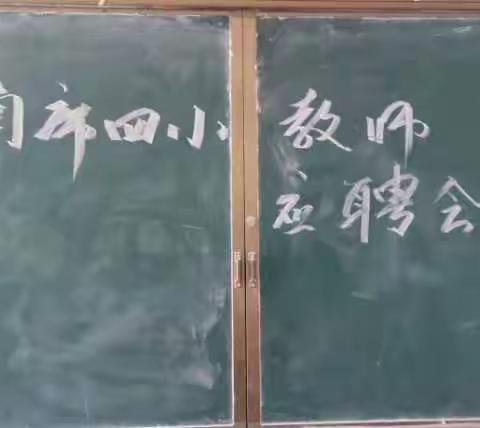 南部四小 教师
应聘会